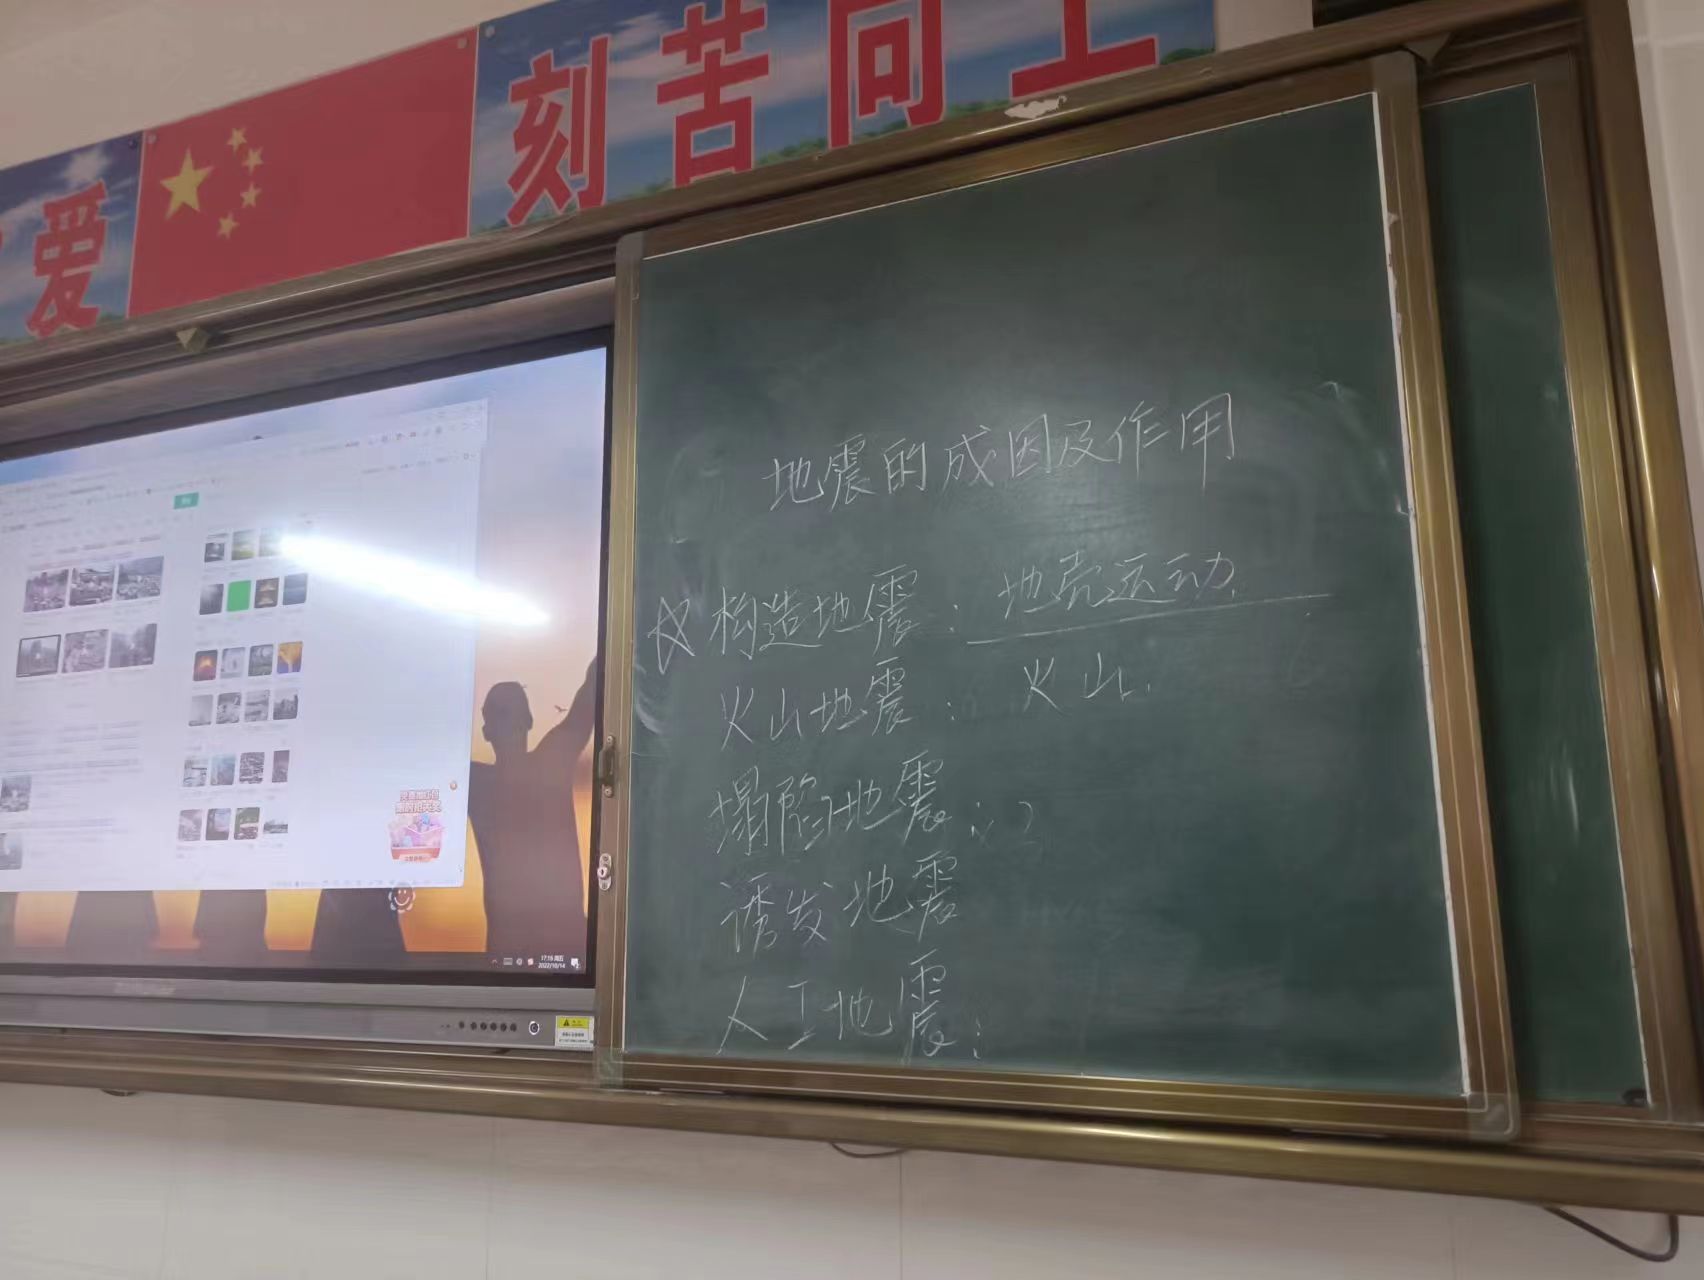 爱
刻苦向上
地震的成因及作用
☆构造地震：地壳运动.
火山地震：火山.
塌陷地震：
诱发地震
人工地震：
17:16 周五
2022/10/14